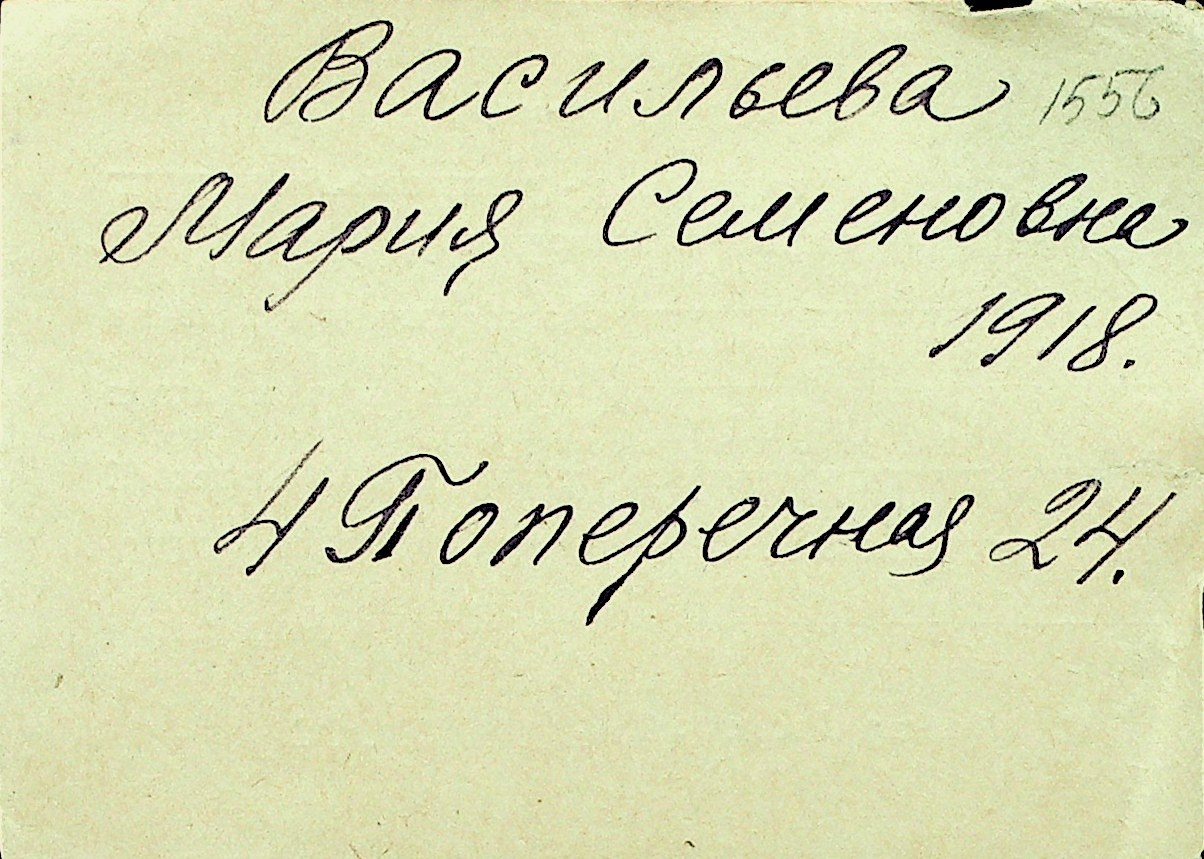 Васильева 1556
Мария Семеновна
1918.
4 Поперечная 24.